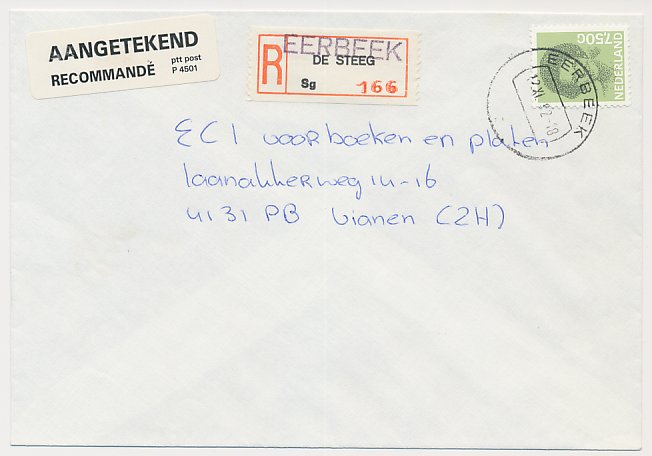 AANGETEKEND
RECOMMANDÉ
ptt post
P 4501
R
EERBEEK
DE STEEG
Sg 166
750c
NEDERLAND
EERBEEK
ECI voor boeken en platen
laanakkerweg 14-16
4131 PB Vianen (ZH)